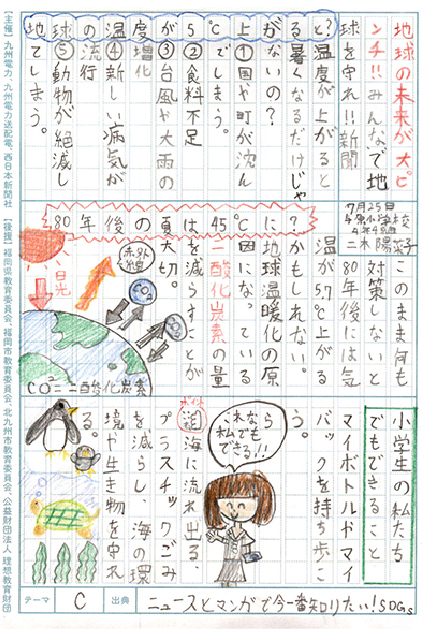 地球の未来が大ピ
ンチ!!みんなで地
球を守れ!!新聞
7月25日
地球の温度が5℃上がると?
温度が上がると
暑くなるだけじゃ
ないの?
①国や町が沈ん
でしまう。
②食料不足
③台風や大雨の
増化
④新しい病気が
流行
⑤動物が絶滅し
てしまう。
80年後の夏は45℃に?
このまま何も
対策しないと
80年後には気
温が5.7℃上がる
かもしれない。
地球温暖化の原
因になっている
二酸化炭素の量
を減らすことが
大切。
赤外線
CO2
CO2
日光
CO2=二酸化炭素
小学生の私たち
でもできること
マイボトルやマイ
バックを持ち歩こ
う。
これなら
私でも
できる!!
海に流れ出る、
プラスチックごみ
を減らし、海の環
境や生き物を守れ
る。
テーマ C 出典 ニュースとマンガで今一番知りたい!SDGs
【主催】九州電力、九州電力送配電、西日本新聞社 【後援】福岡県教育委員会、福岡市教育委員会、北九州市教育委員会、公益財団法人 理想教育財団